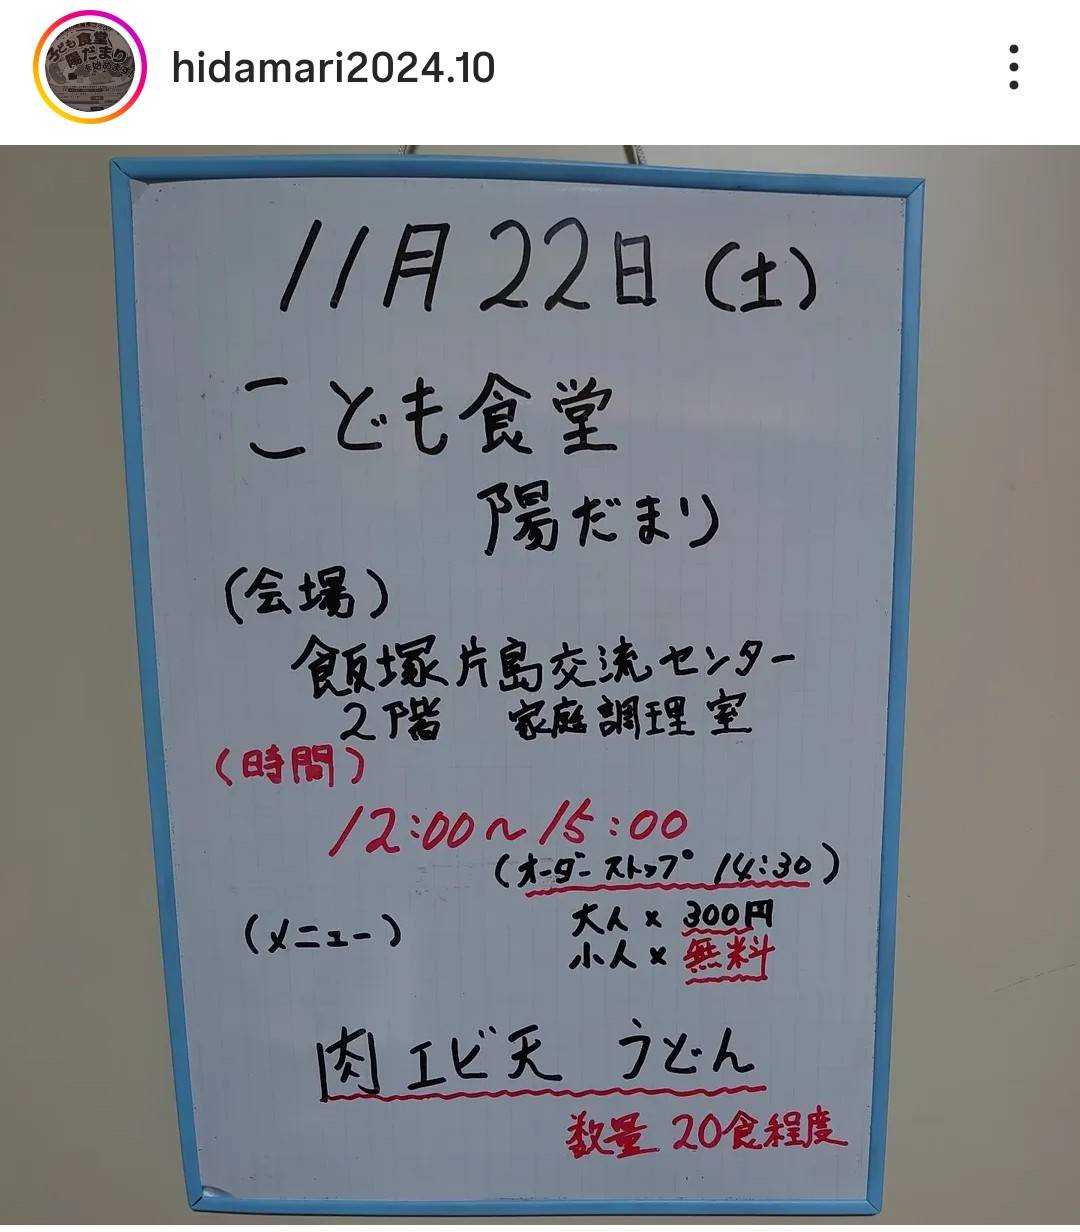 こども食堂
陽だまり
を始めます
hidamari2024.10
11月22日(土)
こども食堂
陽だまり
(会場)
飯塚片島交流センター
2階 家庭調理室
(時間)
12:00~15:00
(オーダーストップ 14:30)
大人 × 300円
(メニュー)
小人 × 無料
肉エビ天 うどん
数量 20食程度